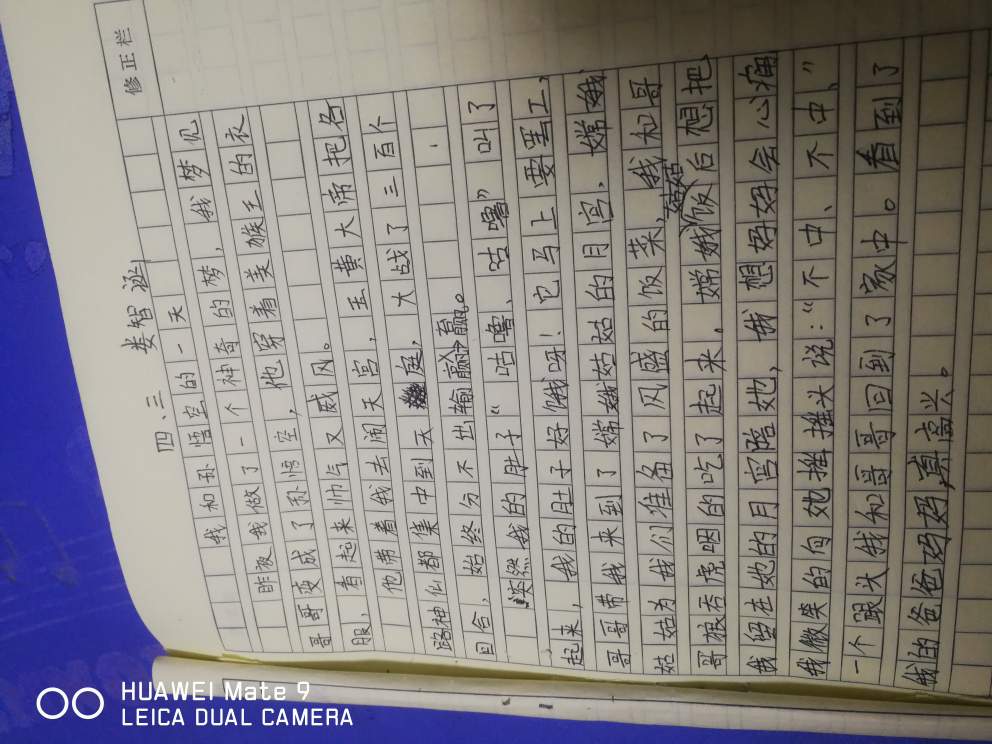 修正栏
四、三 娄智
我和孙悟空的一天
昨夜我做了一个神奇的梦，我梦见
哥哥变成了孙悟空，他穿着美猴王的衣
服，看起来帅气又威风。
他带着我去闹天宫，玉黄大帝把名
路神仙都集中到天庭，大战了三百个
回合，始终分不出输赢。
突然我的肚子“咕噜、咕噜”叫了
起来，我的肚子好饿呀！它马上要罢工，
哥哥带我来到了嫦娥姑姑的月宫，嫦娥
姑姑为我们准备了风盛的饭菜，我和哥
哥狼吞虎咽的吃了起来。嫦娥姑姑饭后想把
我留在她的月宫陪她，我想妈妈会心痛
我微笑的向她摇摇头说：“不中、不中，”
一个跟头我和哥哥回到了家中。看到了
我的爸爸妈妈真高兴。
HUAWEI Mate 9
LEICA DUAL CAMERA